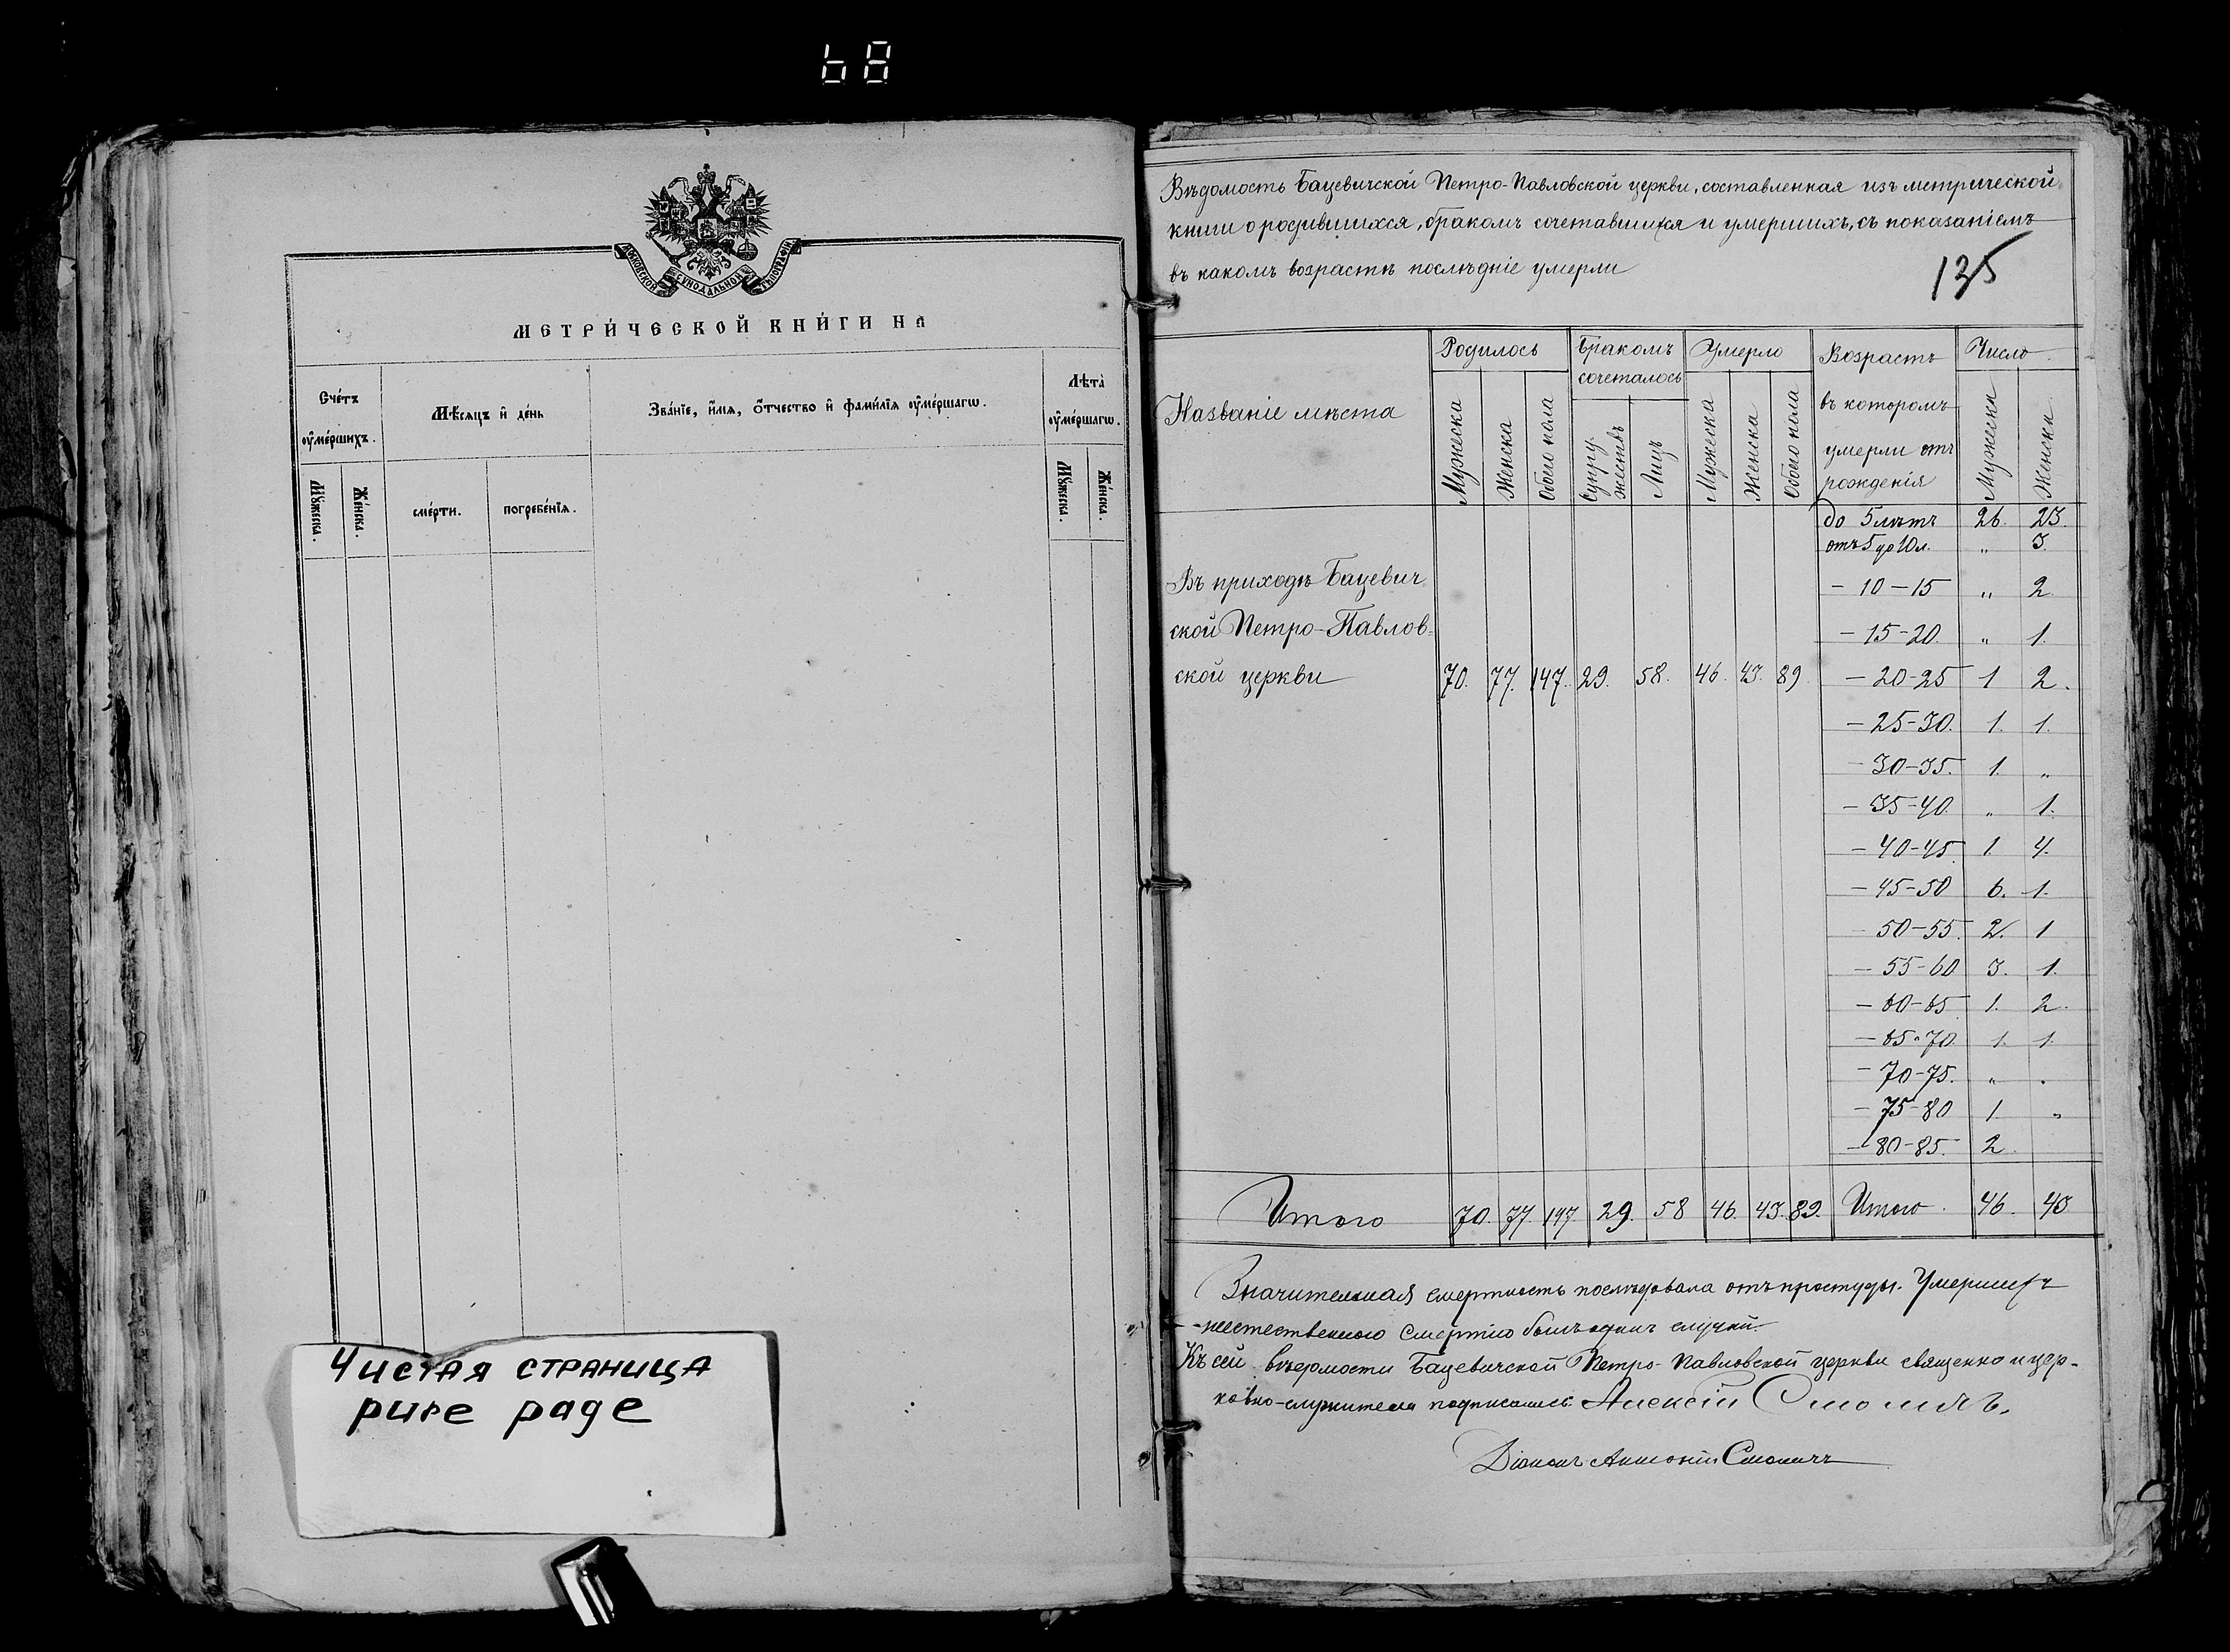 68
МОСКОВСКОЙ СУНОДАЛЬНОЙ ТѴПОГРАФІИ
МЕТРИ́ЧЕСКОЙ КНИ́ГИ НА
Сче́тъ оу҆ме́ршихъ.
Мѣ́сяцъ и҆ де́нь
Зва́нїе, и҆́мѧ, ѻ҆́тчество и҆ фами́лїѧ оу҆ме́ршагѡ.
Лѣта̀ оу҆ме́ршагѡ.
Мꙋ́жеска.
Же́нска.
сме́рти.
погребе́нїѧ.
Мꙋ́жеска.
Же́нска.
Чистая страница
pure page
Вѣдомость Бацевичской Петро-Павловской церкви, составленная изъ метрической
книги о родившихся, бракомъ сочетавшихся и умершихъ, съ показаніемъ
въ какомъ возрастѣ послѣдніе умерли
135
Названіе мѣста
Родилось
Бракомъ сочеталось
Умерло
Возрастъ въ которомъ умерли отъ рожденія
Число
Мужеска
Женска
Обоего пола
Супружествъ
Лицъ
Мужеска
Женска
Обоего пола
Мужеска
Женска
до 5 лѣтъ 26. 23
отъ 5 до 10 л. „ 3.
Въ приходѣ Бацевич
— 10-15 „ 2.
ской Петро-Павлов-
— 15-20. „ 1.
ской церкви 70. 77. 147. 29. 58. 46. 43. 89 — 20-25 1 2.
— 25-30. 1. 1.
— 30-35. 1. „
— 35-40. „ 1.
— 40-45. 1. 4.
— 45-50 6. 1.
— 50-55. 2. 1
— 55-60 3. 1.
— 60-65 1. 2.
— 65-70. 1. 1.
— 70-75. „ „
— 75-80 1 „
— 80-85. 2.
Итого 70. 77. 147. 29. 58 46. 43. 89. Итого 46. 43
Значительная смертность послѣдовала отъ простуды. Умершихъ
неестественною смертію былъ одинъ случай.
Къ сей вѣдомости Бацевичской Петро-Павловской церкви священно и цер-
ковно-служители подписались: Алексій
Діаконъ Антоній Смоличъ